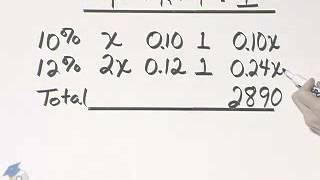 10% x 0.10 1 0.10x
12% 2x 0.12 1 0.24x
Total 2890